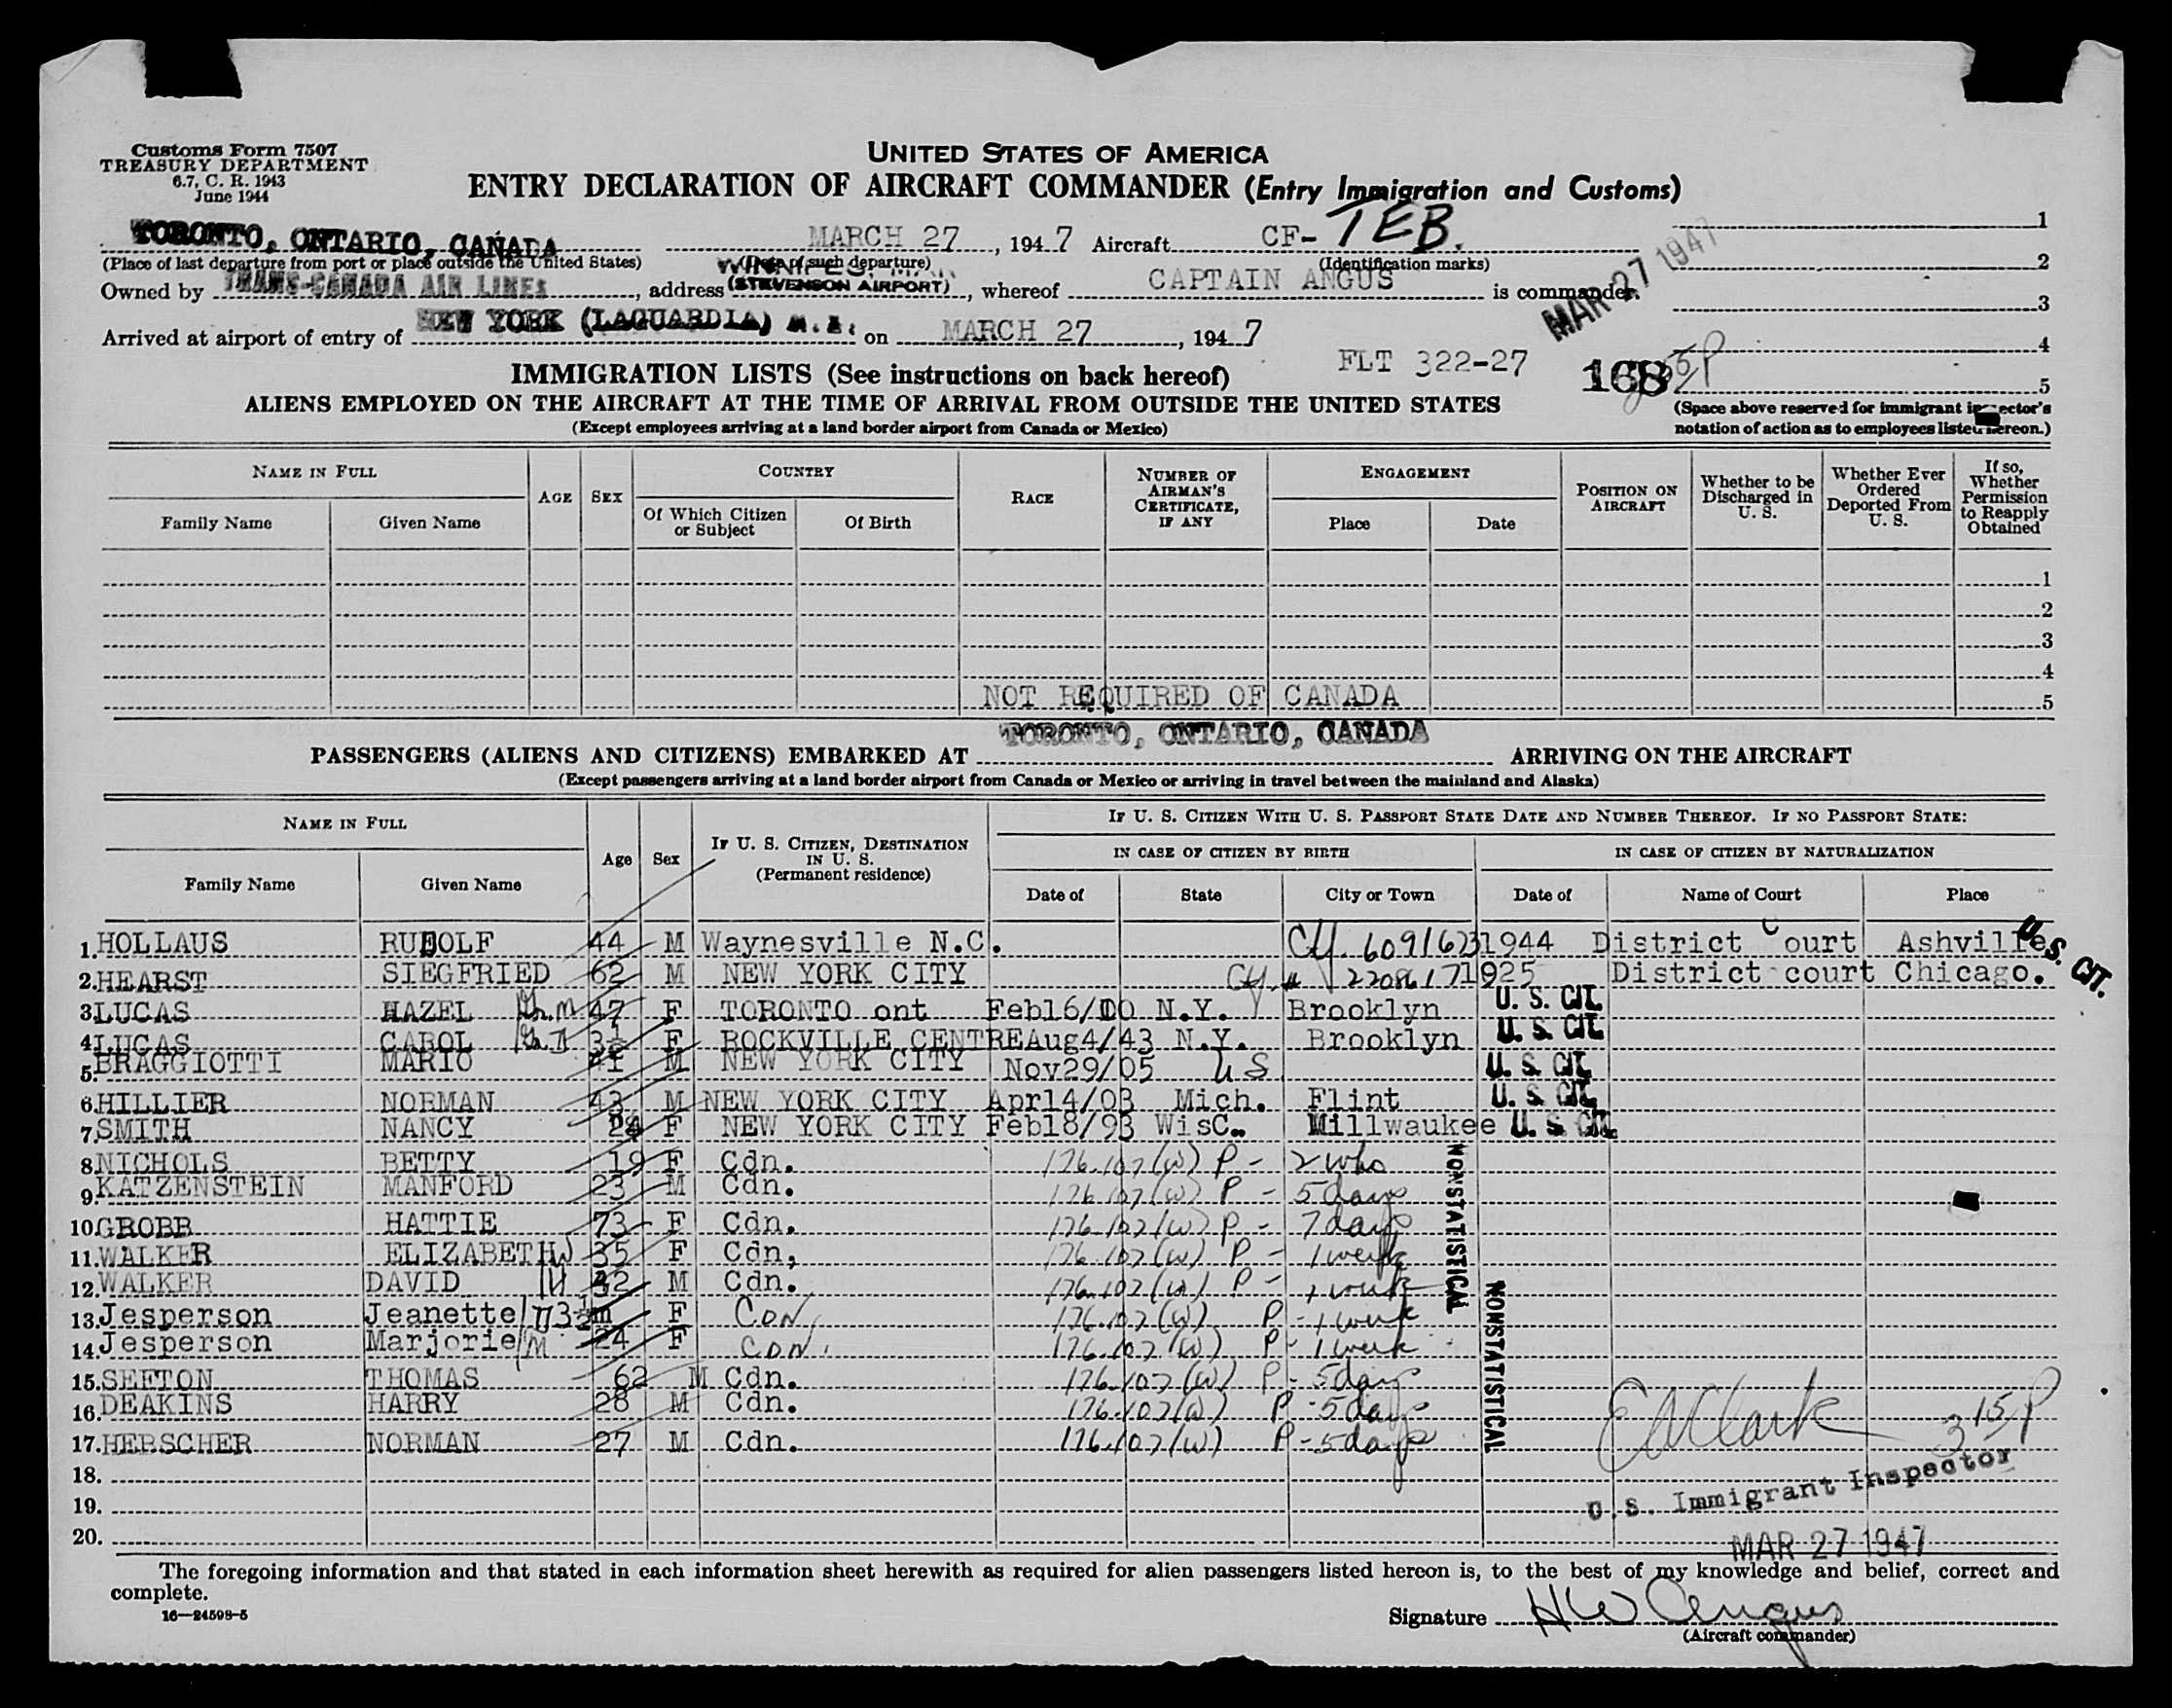 Customs Form 7507
TREASURY DEPARTMENT
6.7, C. R. 1943
June 1944
UNITED STATES OF AMERICA
ENTRY DECLARATION OF AIRCRAFT COMMANDER (Entry Immigration and Customs)
TORONTO, ONTARIO, CANADA MARCH 27, 1947 Aircraft CF-TEB.
(Place of last departure from port or place outside the United States) (Date of such departure) (Identification marks)
Owned by TRANS-CANADA AIR LINES, address WINNIPEG, MAN. (STEVENSON AIRPORT), whereof CAPTAIN ANGUS is commander.
Arrived at airport of entry of NEW YORK (LAGUARDIA) on MARCH 27, 1947
MAR 27 1947
1
2
3
4
5
FLT 322-27
168
IMMIGRATION LISTS (See instructions on back hereof)
ALIENS EMPLOYED ON THE AIRCRAFT AT THE TIME OF ARRIVAL FROM OUTSIDE THE UNITED STATES
(Except employees arriving at a land border airport from Canada or Mexico)
(Space above reserved for immigrant inspector's
notation of action as to employees listed hereon.)
NAME IN FULL
Family Name
Given Name
AGE
SEX
COUNTRY
Of Which Citizen or Subject
Of Birth
RACE
NUMBER OF AIRMAN'S CERTIFICATE, IF ANY
ENGAGEMENT
Place
Date
POSITION ON AIRCRAFT
Whether to be Discharged in U. S.
Whether Ever Ordered Deported From U. S.
If so, Whether Permission to Reapply Obtained
1
2
3
4
NOT REQUIRED OF CANADA 5
TORONTO, ONTARIO, CANADA
PASSENGERS (ALIENS AND CITIZENS) EMBARKED AT ARRIVING ON THE AIRCRAFT
(Except passengers arriving at a land border airport from Canada or Mexico or arriving in travel between the mainland and Alaska)
NAME IN FULL
Family Name
Given Name
Age
Sex
IF U. S. CITIZEN, DESTINATION IN U. S.
(Permanent residence)
IF U. S. CITIZEN WITH U. S. PASSPORT STATE DATE AND NUMBER THEREOF. IF NO PASSPORT STATE:
IN CASE OF CITIZEN BY BIRTH
IN CASE OF CITIZEN BY NATURALIZATION
Date of
State
City or Town
Date of
Name of Court
Place
1. HOLLAUS RUDOLF 44 M Waynesville N.C. 1944 District Court Ashville U. S. CIT.
2. HEARST SIEGFRIED 62 M NEW YORK CITY 1925 District court Chicago.
3 LUCAS HAZEL 47 F TORONTO ont N.Y. Brooklyn U. S. CIT.
4. LUCAS CAROL 3½ F ROCKVILLE CENTRE Aug4/43 N.Y. Brooklyn U. S. CIT.
5. BRAGGIOTTI MARIO 41 M NEW YORK CITY Nov29/05 U S U. S. CIT.
6. HILLIER NORMAN 43 M NEW YORK CITY Apr14/03 Mich. Flint U. S. CIT.
7. SMITH NANCY F NEW YORK CITY Feb18/93 WisC. Millwaukee U. S. CIT.
8. NICHOLS BETTY 19 F Cdn. 176.107(W) P - 2 wks
9. KATZENSTEIN MANFORD 23 M Cdn. 176.107(W) P - 5 days
10. GROBB HATTIE 73 F Cdn. 176.107(W) P - 7 days
11. WALKER ELIZABETH W 35 F Cdn, 176.107(W) P - 1 week
12. WALKER DAVID H 42 M Cdn. 176.107(W) P - 1 week
13. Jesperson Jeanette 3½m F CDN, 176.107(W) P - 1 week
14. Jesperson Marjorie M 24 F CDN. 176.107(W) P - 1 week
15. SEFTON THOMAS 62 M Cdn. 176.107(W) P - 5 days
16. DEAKINS HARRY 28 M Cdn. 176.107(W) P - 5 days
17. HERSCHER NORMAN 27 M Cdn. 176.107(W) P - 5 days
NONSTATISTICAL
NONSTATISTICAL
E A Clark 3 15 P
18.
19.
U. S. Immigrant Inspector
20.
MAR 27 1947
The foregoing information and that stated in each information sheet herewith as required for alien passengers listed hereon is, to the best of my knowledge and belief, correct and
complete.
16—24598-5
Signature H W Angus
(Aircraft commander)